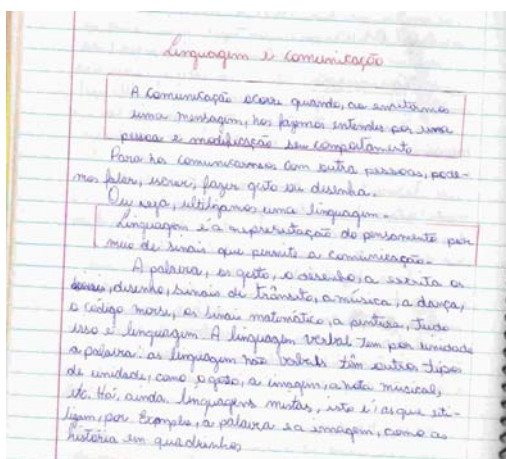 Linguagem e comunicação
A comunicação ocorre quando, ao emitirmos
uma mensagem, nos fazemos entender por uma
pessoa e modificação seu comportamento
Para nos comunicarmos com outra pessoas, pode-
mos falar, escrever, fazer gesto ou desenha.
Ou seja, ultilizamos uma linguagem.
Linguagem e a representação do pensamento por
meio de sinais que permite a comunicação.
A palavra, os gesto, o desenho, a escrita os
desenho, sinais de trânsito, a música, a dança,
o código morse, os sinais matemático, a pintura, tudo
isso é linguagem. A linguagem verbal tem por unidade
a palavra: as linguagem não verbais têm outros tipos
de unidade, como o gesto, a imagem, a nota musical,
etc. Há, ainda linguagens mistas, isto é; as que uti-
lizam, por Exemplo, a palavra e a imagem, como as
história em quadrinhos